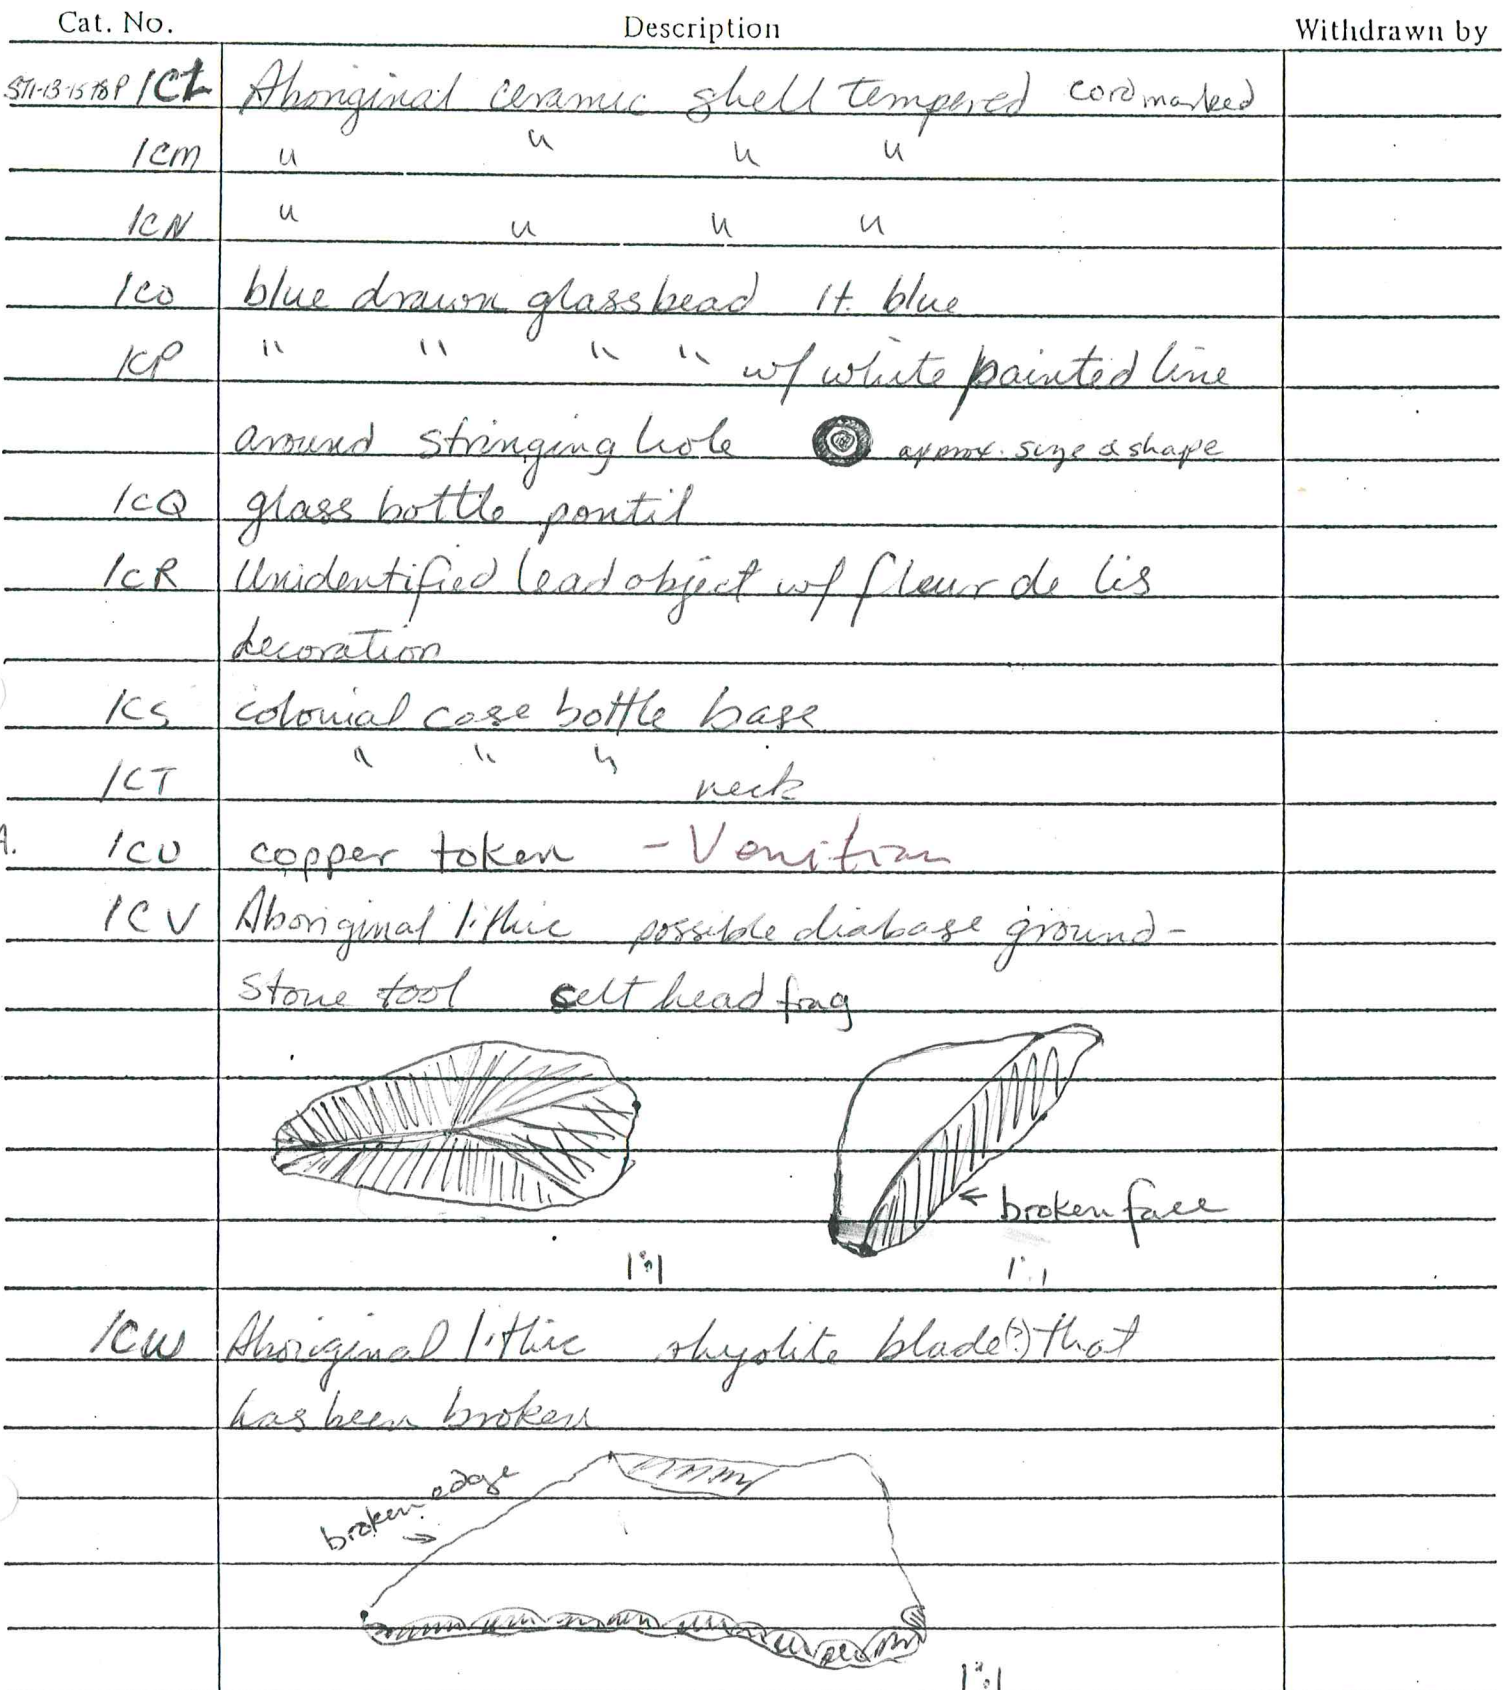 Cat. No. Description Withdrawn by
/CL Aboriginal ceramic shell tempered cord marked
/CM " " " "
/CN " " " "
/CO blue drawn glass bead lt. blue
/CP " " " " w/ white painted line
around stringing hole approx. size & shape
/CQ glass bottle pontil
/CR Unidentified lead object w/ fleur de lis
decoration
/CS colonial case bottle base
/CT " " " neck
A. /CU copper token - Venitian
/CV Aboriginal lithic possible diabase ground-
stone tool celt head frag
← broken face
1:1 1:1
/CW Aboriginal lithic rhyolite blade(?) that
has been broken
broken edge →
1:1